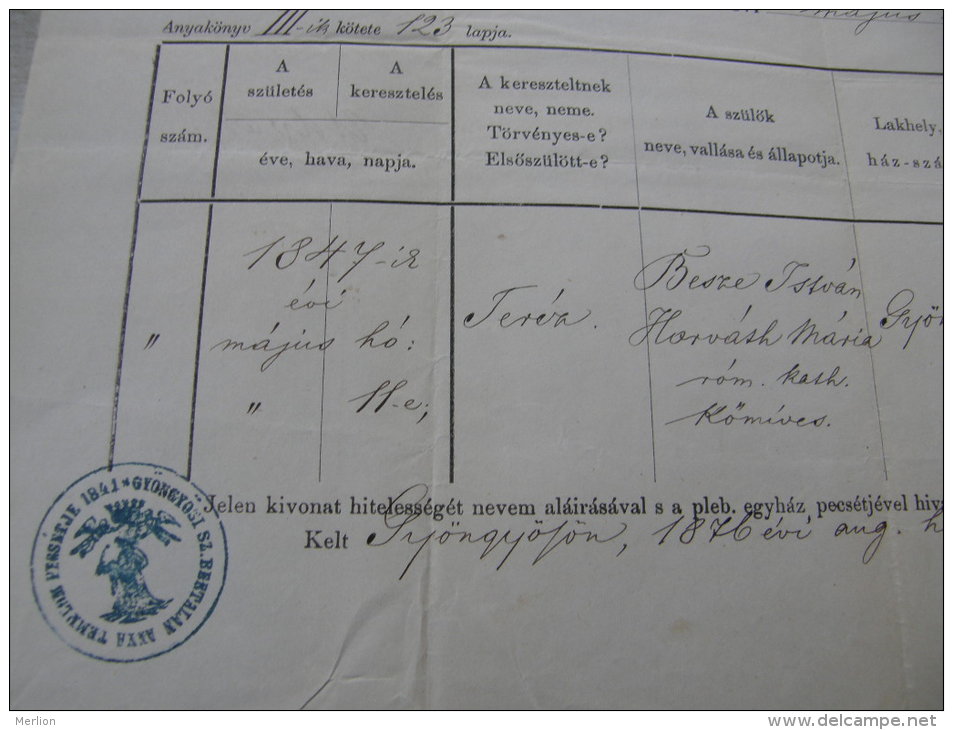 május
Anyakönyv III-ik kötete 123 lapja.
Folyó
szám.
A
születés
A
keresztelés
éve, hava, napja.
A kereszteltnek
neve, neme.
Törvényes-e?
Elsőszülött-e?
A szülők
neve, vallása és állapotja.
Lakhely,
ház-szá
1847-ik
évi
május hó:
" 11-e;
"
Teréz.
Besze István
Horváth Mária
róm. kath.
Kőmíves.
Gyön
Jelen kivonat hitelességét nevem aláirásával s a pleb. egyház pecsétjével hiv
Kelt Gyöngyösön, 1876 évi aug. h
GYÖNGYÖSI SZ. BERTALAN ANYA TEMPLOM PECSÉTJE 1841 *
Merlion
www.delcampe.net